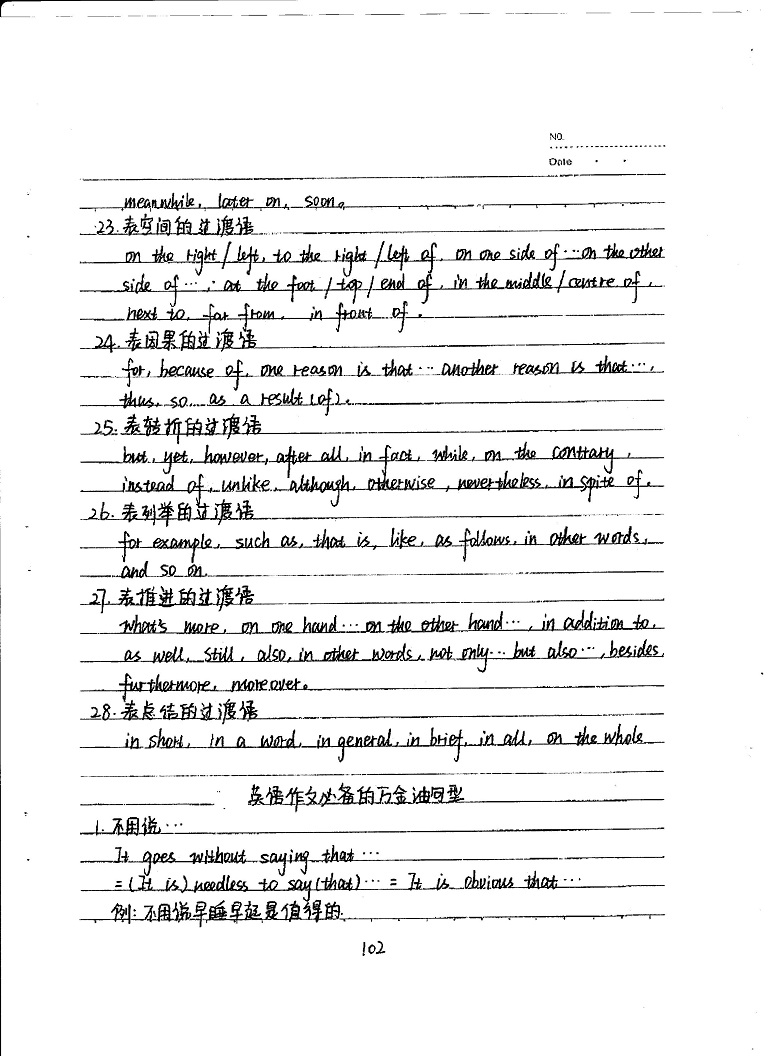 NO.
Date
meanwhile, later on, soon。
23.表空间的过渡语
on the right/left, to the right/left of, on one side of…on the other
side of…, at the foot/top/end of, in the middle/centre of,
next to, far from, in front of.
24.表因果的过渡语
for, because of, one reason is that… another reason is that…,
thus, so, as a result (of).
25.表转折的过渡语
but, yet, however, after all, in fact, while, on the contrary,
instead of, unlike, although, otherwise, nevertheless, in spite of.
26.表列举的过渡语
for example, such as, that is, like, as follows, in other words,
and so on.
27.表推进的过渡语
what's more, on one hand…on the other hand…, in addition to,
as well, still, also, in other words, not only…but also…, besides,
furthermore, moreover。
28.表总结的过渡语
in short, in a word, in general, in brief, in all, on the whole
英语作文必备的万金油句型
1.不用说…
It goes without saying that…
=(It is) needless to say(that)…=It is obvious that…
例:不用说早睡早起是值得的.
102